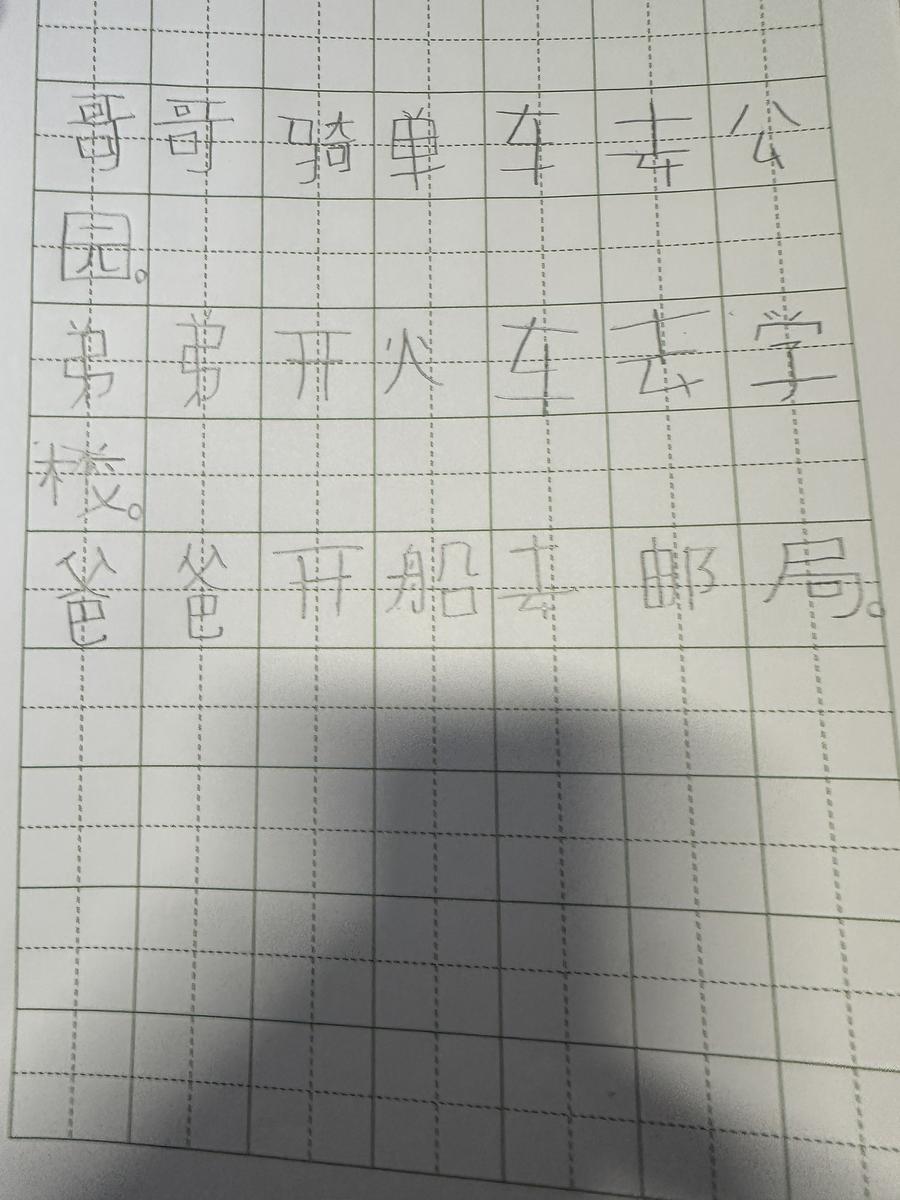 哥哥骑单车去公
园。
弟弟开火车去学
校。
爸爸开船去邮局。